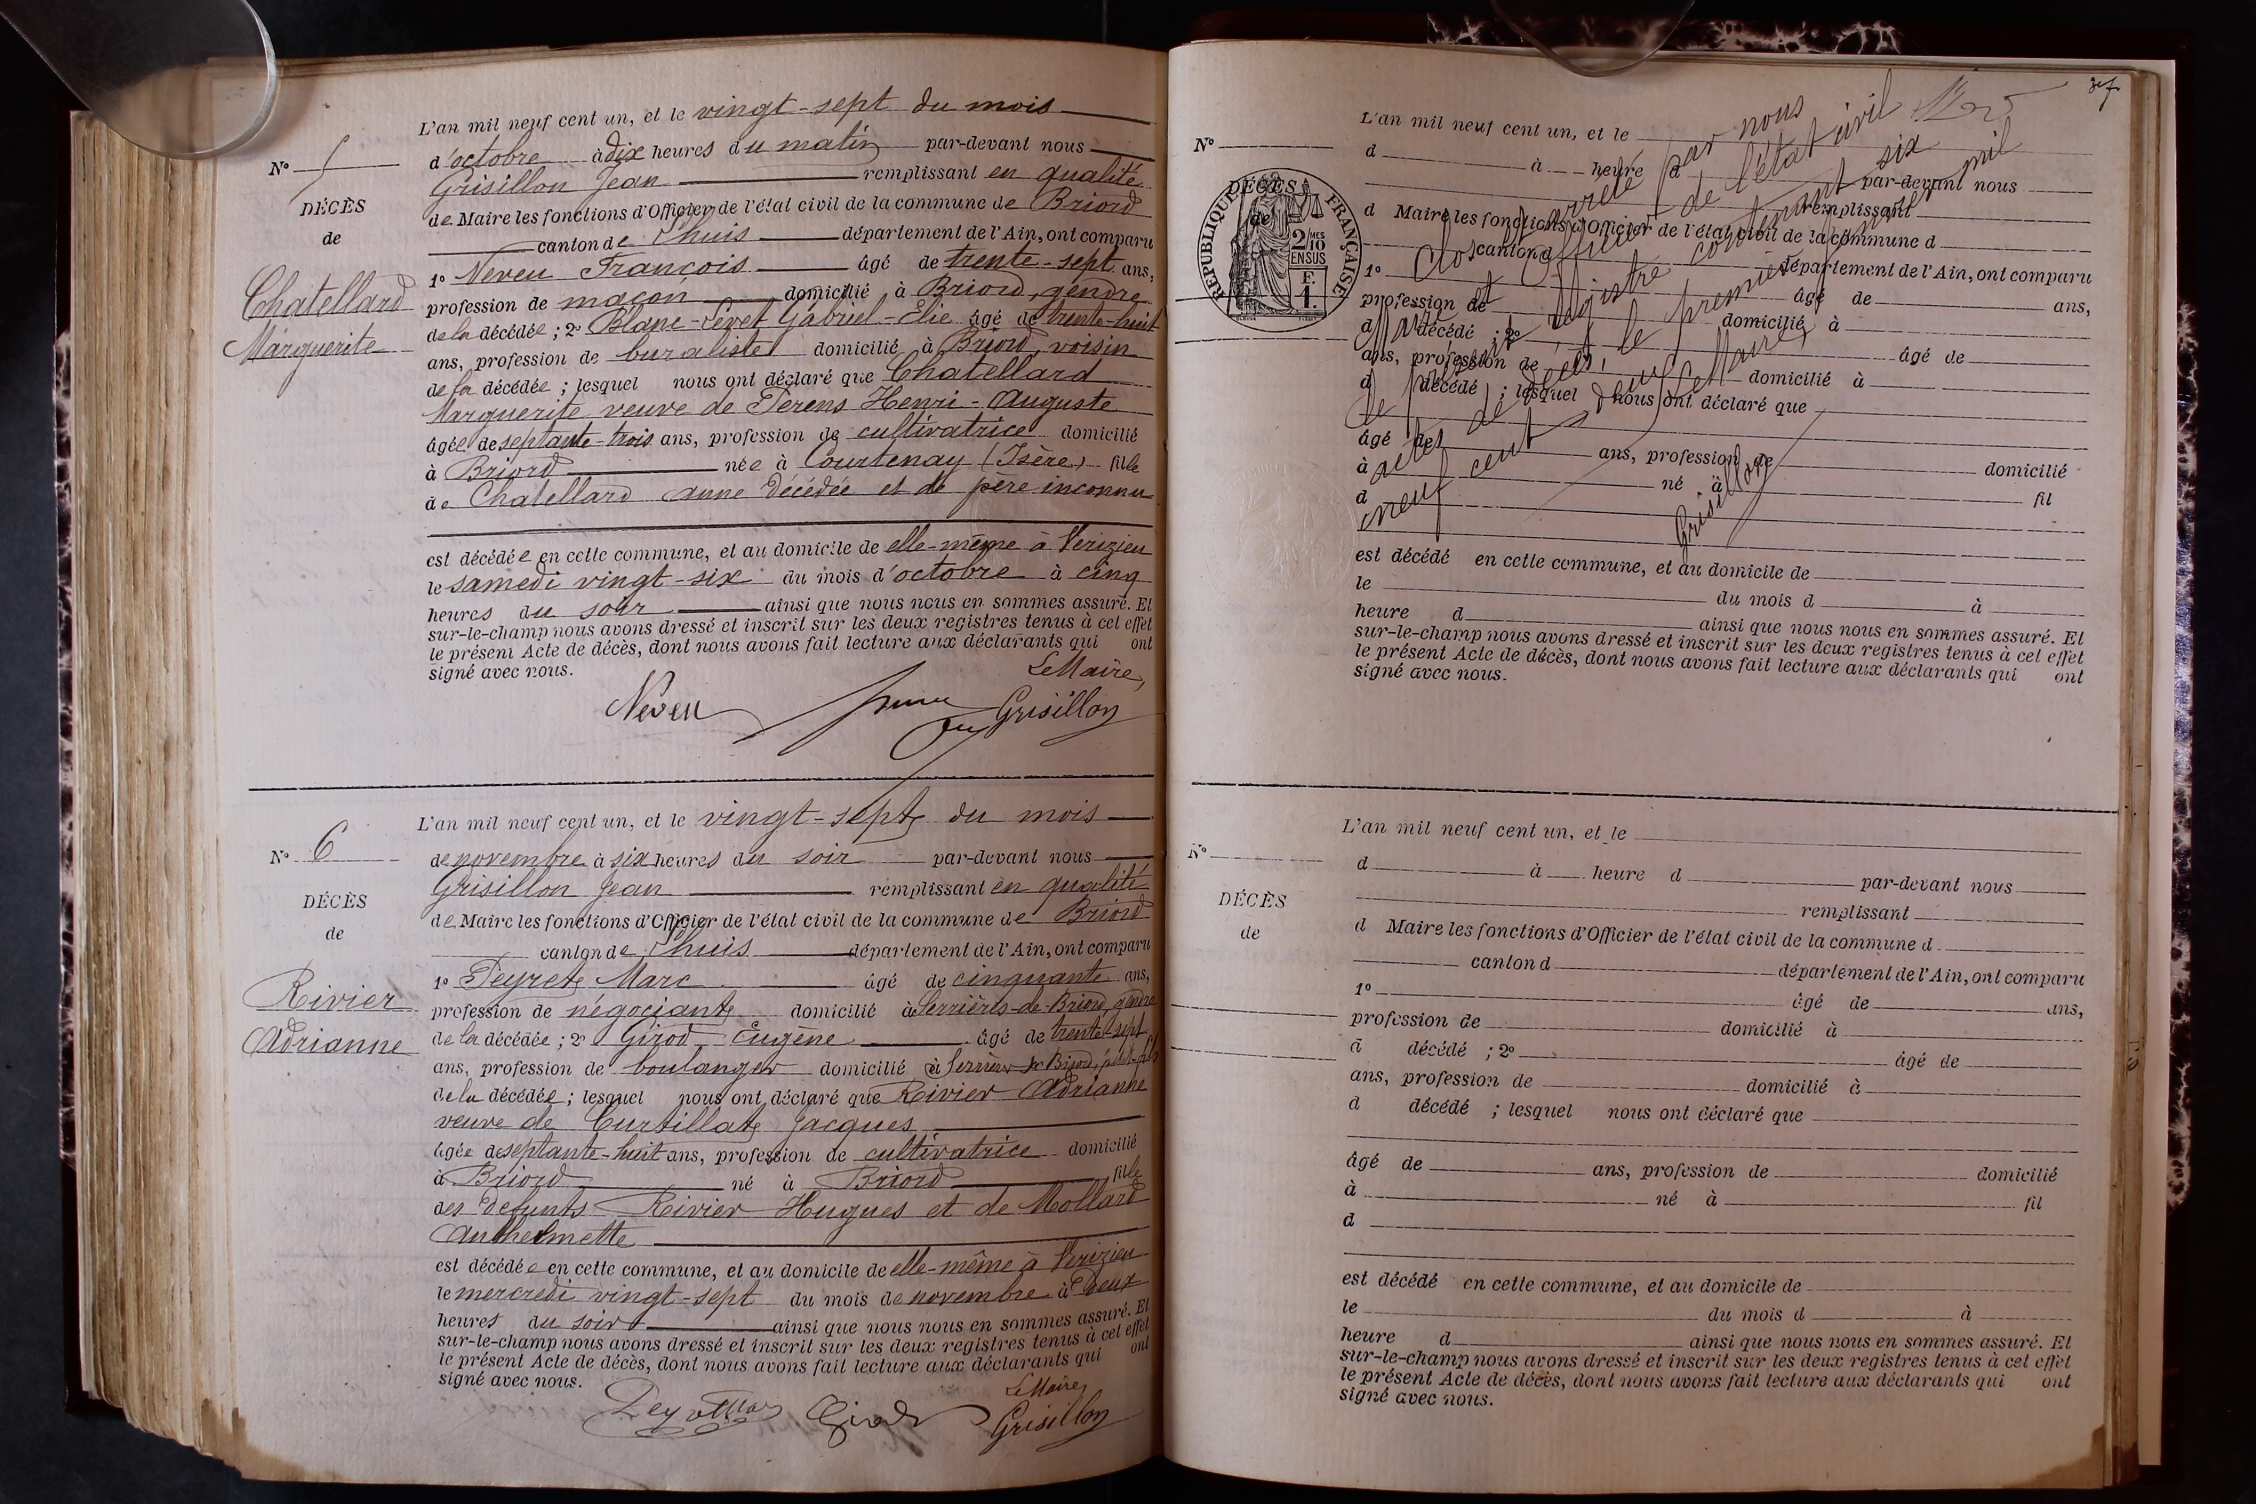 L'an mil neuf cent un, et le vingt-sept du mois
N° 5
d'octobre à dix heures du matin par-devant nous
Grisillon Jean remplissant en qualité
DÉCÈS
de Maire les fonctions d'Officier de l'état civil de la commune de Briord
de
canton de Lhuis département de l'Ain, ont comparu
1° Neveu François âgé de trente-sept ans,
Chatellard
Marguerite
profession de maçon domicilié à Briord, gendre
de la décédée ; 2° Blanc-Livet Gabriel-Elie âgé de trente-huit
ans, profession de buraliste domicilié à Briord, voisin
de la décédée ; lesquel nous ont déclaré que Chatellard
Marguerite veuve de Ferens Henri-Auguste
âgée de septante-trois ans, profession de cultivatrice domicilié
à Briord née à Courtenay (Isère) fille
de Chatellard anne décédée et de père inconnu
est décédée en cette commune, et au domicile de elle-même à Verizieu
le samedi vingt-six du mois d'octobre à cinq
heures du soir ainsi que nous nous en sommes assuré. Et
sur-le-champ nous avons dressé et inscrit sur les deux registres tenus à cet effet
le présent Acte de décès, dont nous avons fait lecture aux déclarants qui ont
signé avec nous.
Le Maire,
Neveu Grisillon
L'an mil neuf cent un, et le vingt-sept du mois
N° 6
de novembre à six heures du soir par-devant nous
Grisillon Jean remplissant en qualité
DÉCÈS
de Maire les fonctions d'Officier de l'état civil de la commune de Briord
de
canton de Lhuis département de l'Ain, ont comparu
1° Peyret Marc âgé de cinquante ans,
Rivier
Adrianne
profession de négociant domicilié à Serrières-de-Briord, gendre
de la décédée ; 2° Girod Eugène âgé de trente-sept
ans, profession de boulanger domicilié à Serrières de Briord, petit-fils
de la décédée ; lesquel nous ont déclaré que Rivier Adrianne
veuve de Curtillat Jacques
âgée de septante-huit ans, profession de cultivatrice domicilié
à Briord né à Briord fille
des défunts Rivier Hugues et de Mollard
Anthelmette
est décédée en cette commune, et au domicile de elle-même à Verizieu
le mercredi vingt-sept du mois de novembre à deux
heures du soir ainsi que nous nous en sommes assuré. Et
sur-le-champ nous avons dressé et inscrit sur les deux registres tenus à cet effet
le présent Acte de décès, dont nous avons fait lecture aux déclarants qui ont
signé avec nous.
Le Maire,
Girod Grisillon
L'an mil neuf cent un, et le
N°
d à heure d par-devant nous
remplissant
DÉCÈS
de
RÉPUBLIQUE FRANÇAISE
2/10 MES EN SUS
F. 1.
d Maire les fonctions d'Officier de l'état civil de la commune d
canton d département de l'Ain, ont comparu
1° âgé de ans,
profession de domicilié à
d décédé ; 2° âgé de
ans, profession de domicilié à
d décédé ; lesquel nous ont déclaré que
âgé de ans, profession de domicilié
à né à fil
d
est décédé en cette commune, et au domicile de
le du mois d à
heure d ainsi que nous nous en sommes assuré. Et
sur-le-champ nous avons dressé et inscrit sur les deux registres tenus à cet effet
le présent Acte de décès, dont nous avons fait lecture aux déclarants qui ont
signé avec nous.
Clos et arrêté par nous
Maire Officier de l'état civil
le présent registre contenant six
actes de décès, le premier janvier mil
neuf cent deux
Le Maire,
Grisillon
L'an mil neuf cent un, et le
N°
d à heure d par-devant nous
remplissant
DÉCÈS
de
d Maire les fonctions d'Officier de l'état civil de la commune d
canton d département de l'Ain, ont comparu
1° âgé de ans,
profession de domicilié à
d décédé ; 2° âgé de
ans, profession de domicilié à
d décédé ; lesquel nous ont déclaré que
âgé de ans, profession de domicilié
à né à fil
d
est décédé en cette commune, et au domicile de
le du mois d à
heure d ainsi que nous nous en sommes assuré. Et
sur-le-champ nous avons dressé et inscrit sur les deux registres tenus à cet effet
le présent Acte de décès, dont nous avons fait lecture aux déclarants qui ont
signé avec nous.